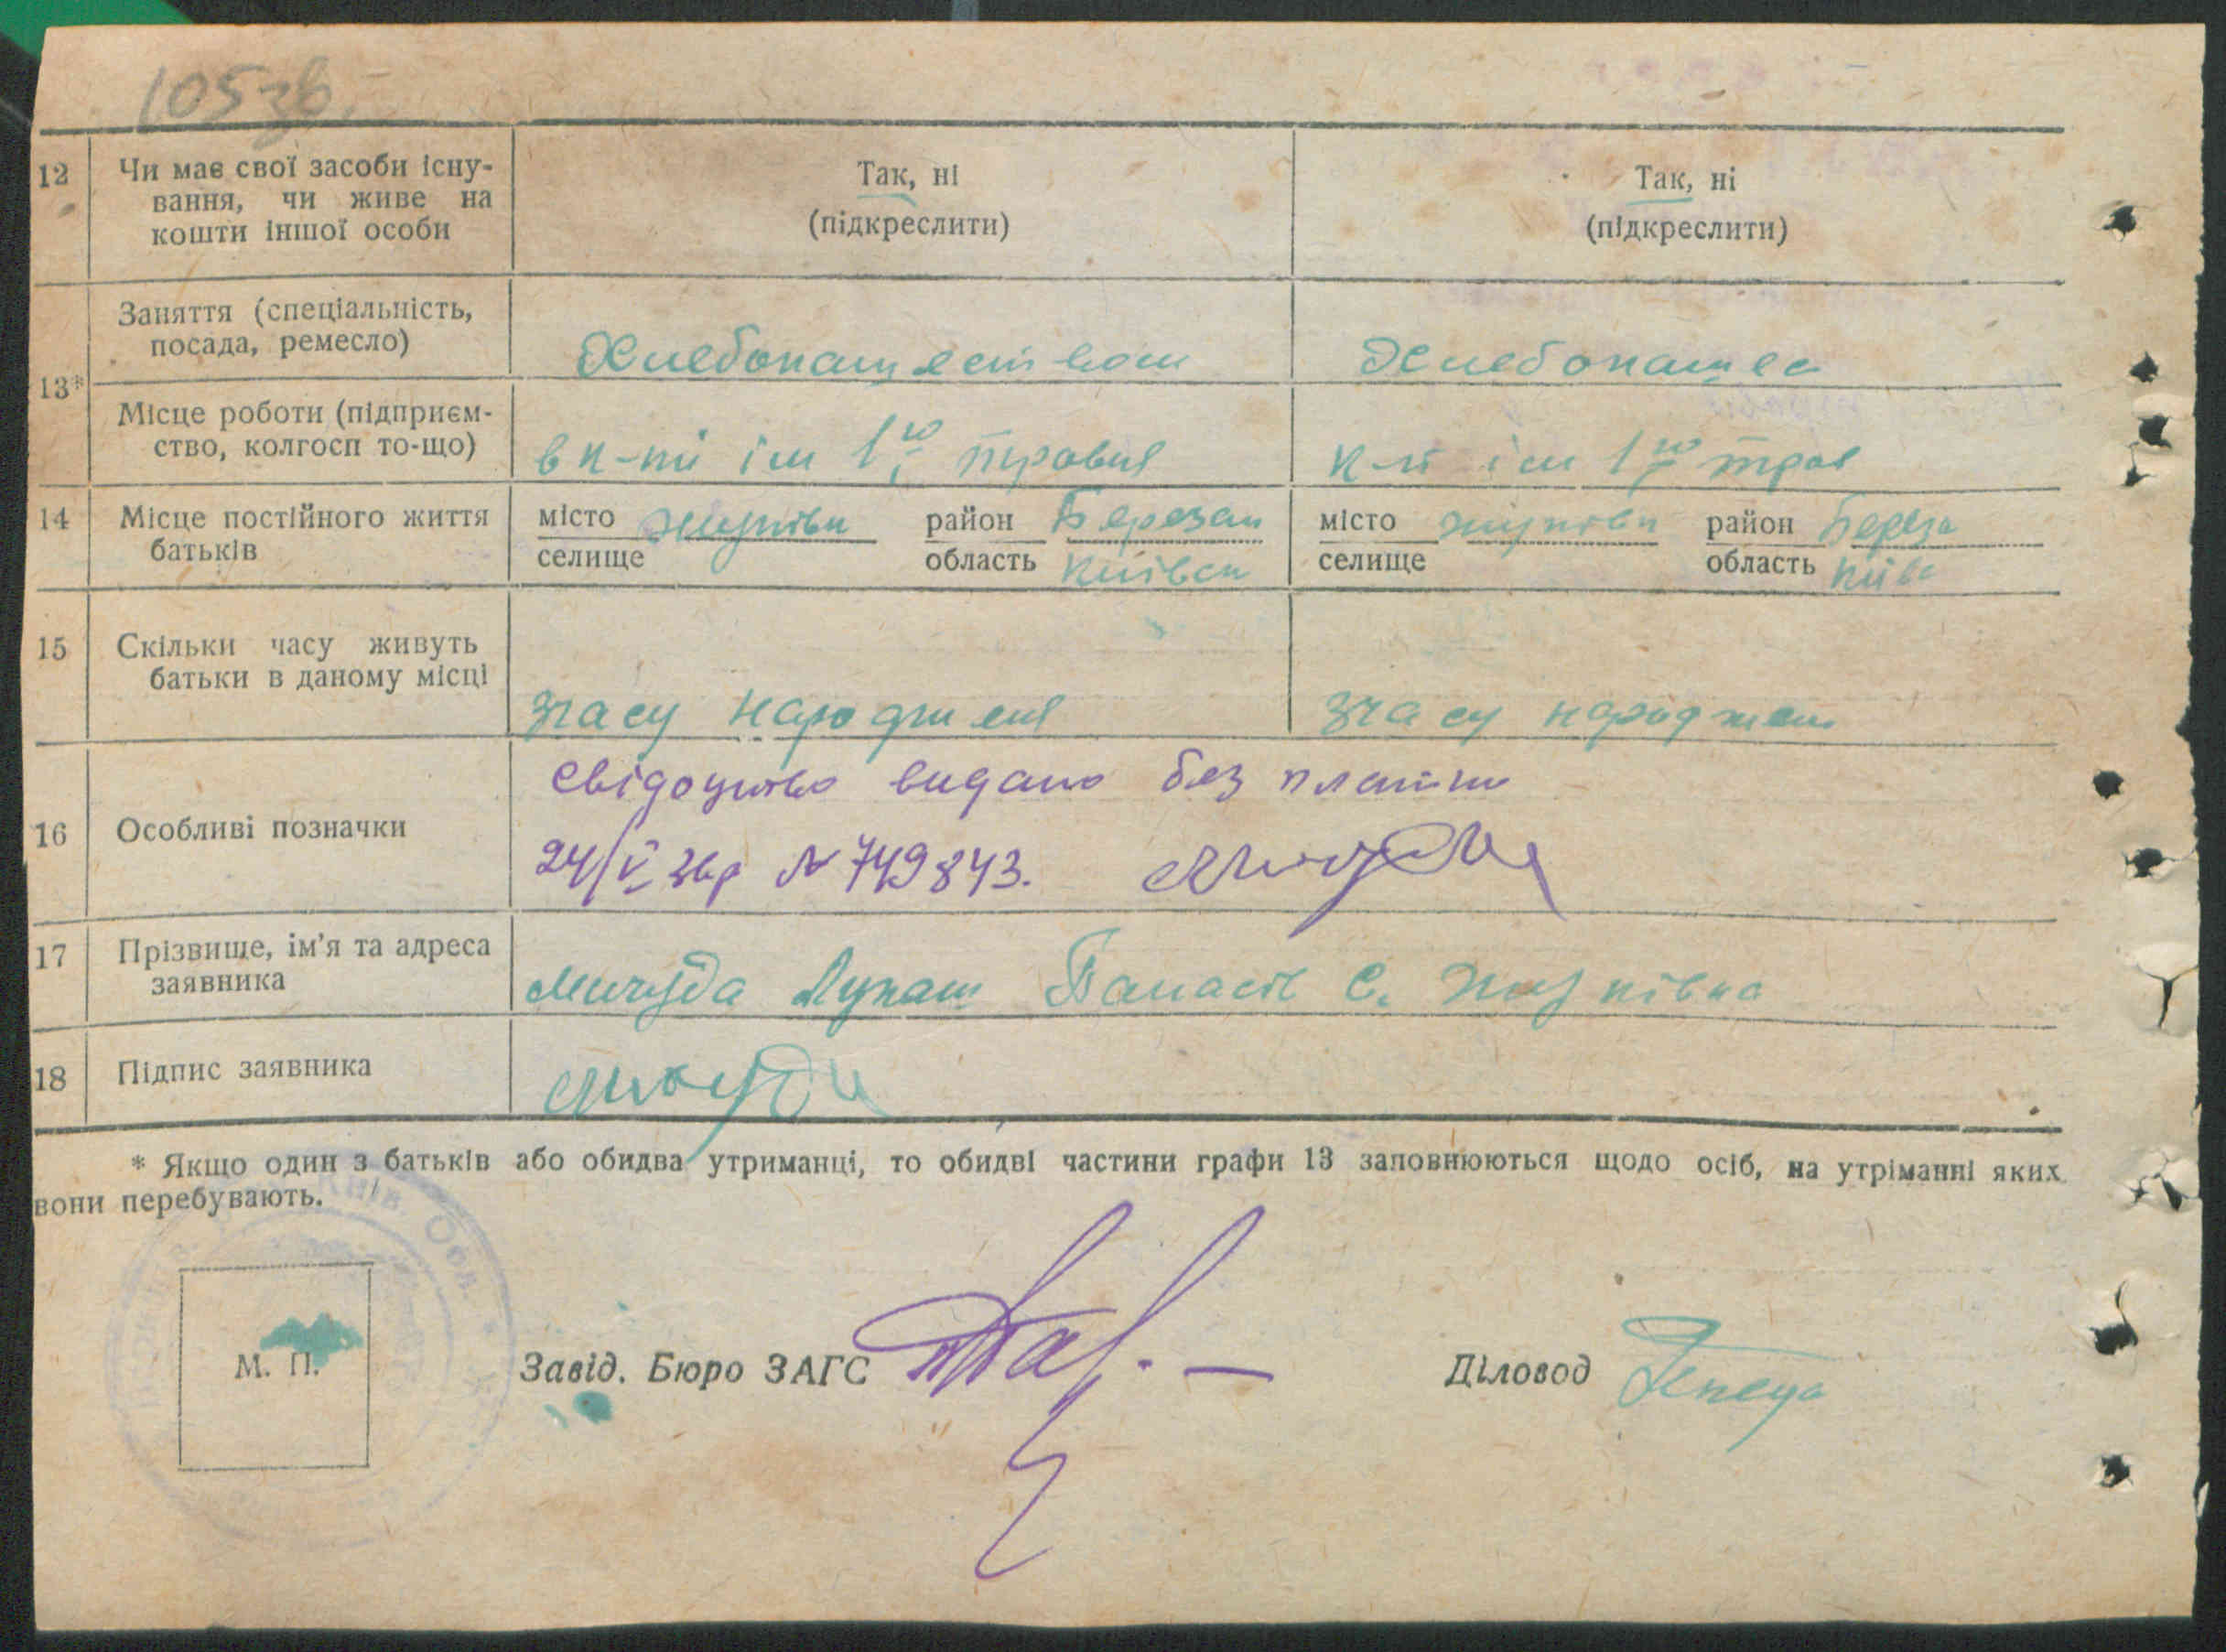 105зв.
12 Чи має свої засоби існу- Так, ні Так, ні
вання, чи живе на (підкреслити) (підкреслити)
кошти іншої особи
13*
Заняття (спеціальність,
посада, ремесло) Хлебопашеством Хлебопашес
Місце роботи (підприєм-
ство, колгосп то-що) в к-пі ім 1го травня к-п ім 1го трав
14 Місце постійного життя місто Жуківки район Березан місто Жуківки район Береза
батьків селище область Київськ селище область Київ
15 Скільки часу живуть
батьки в даному місці
зчасу народженя зчасу народжен
Свідоцтво видано без платні
16 Особливі позначки
24/V 36р № 749843.
17 Прізвище, ім'я та адреса
заявника Мичуда Лукаш Панасів С. Жуківка
18 Підпис заявника
* Якщо один з батьків або обидва утриманці, то обидві частини графи 13 заповнюються щодо осіб, на утріманні яких
вони перебувають.
Київ Обл.
М. П.
Завід. Бюро ЗАГС Діловод